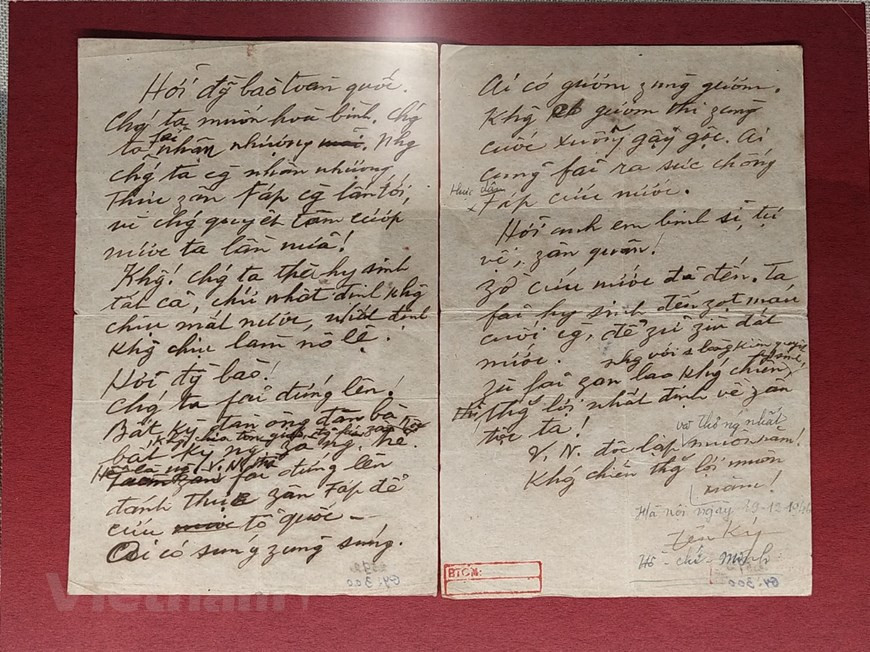 Hỡi đỹ bào toàn quốc.
Chg' ta muốn hoà bình, chg'
ta fải nhân nhượng. Nhg
chg' ta cg nhân nhượng
Thực zân Fáp cg lấn tới,
vì chg' quyết tâm cướp
nước ta lần nữa!
Khg! chg' ta thà hy sinh
tất cả, chứ nhất định khg
chịu mất nước, nhất định
khg chịu làm nô lệ!
Hỡi đỹ bào!
Chg' ta fải đứng lên!
Bất kỳ đàn ông đàn bà
bất kỳ ng' zà ng' trẻ.
Hễ là ng' V.N. thì
fải đứng lên
đánh thực zân Fáp để
cứu tổ quốc –
Ai có súng zùng súng.
Ai có gươm zùng gươm.
Khg có gươm thì zùng
cuốc xuổng gậy gộc. Ai
cũng fải ra sức chống
thực dân
Fáp cứu nước.
Hỡi anh em binh sĩ, tự
vệ, zân quân!
Zờ cứu nước đã đến. Ta
fải hy sinh đến zọt máu
cuối cg, để zữ zìn đất
nước.
Zù fải zan lao khg' chiến,
nhg với 1 lòng kiên quyết
hy sinh,
thì thg' lợi nhất định về zân
tộc ta!
V.N. độc lập và thống nhất
muôn năm!
Khg' chiến thg' lợi muôn
năm!
Hà nội ngày 19-12-1946
Hồ-chí-Minh
BTCM:
64:300
64:300
Vietnam